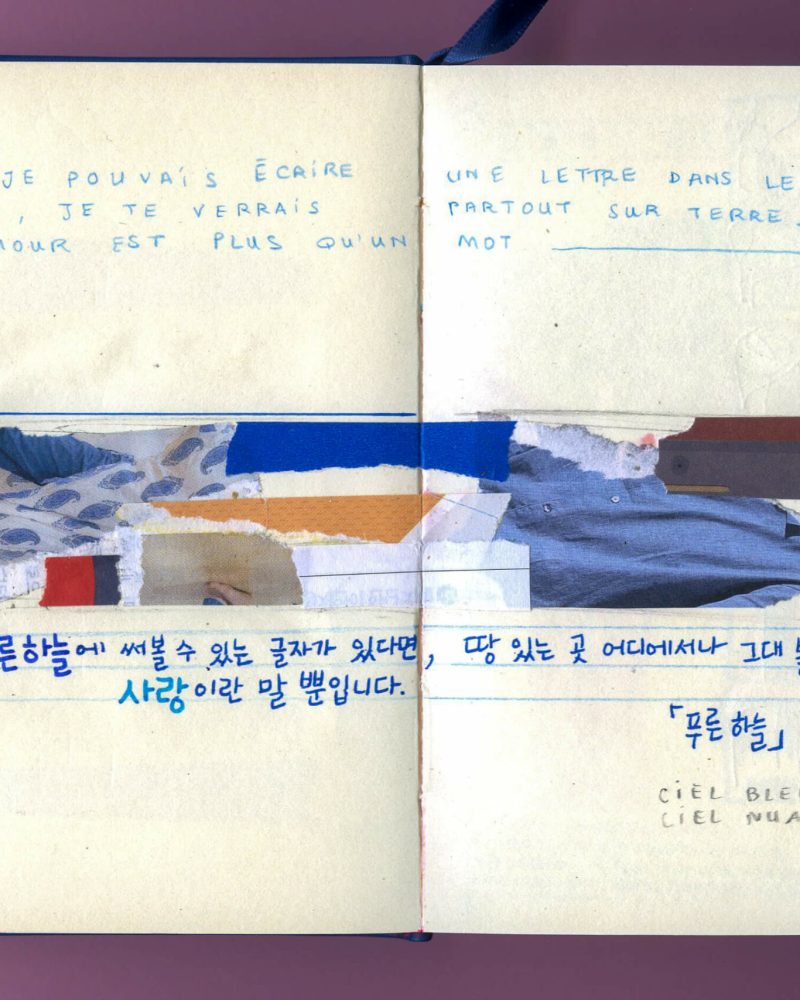 JE POUVAIS ÉCRIRE UNE LETTRE DANS LE
, JE TE VERRAIS PARTOUT SUR TERRE,
MOUR EST PLUS QU'UN MOT
른 하늘에 써볼 수 있는 글자가 있다면, 땅 있는 곳 어디에서나 그대
사랑이란 말 뿐입니다.
「푸른 하늘」
CIEL BLEU
CIEL NUA